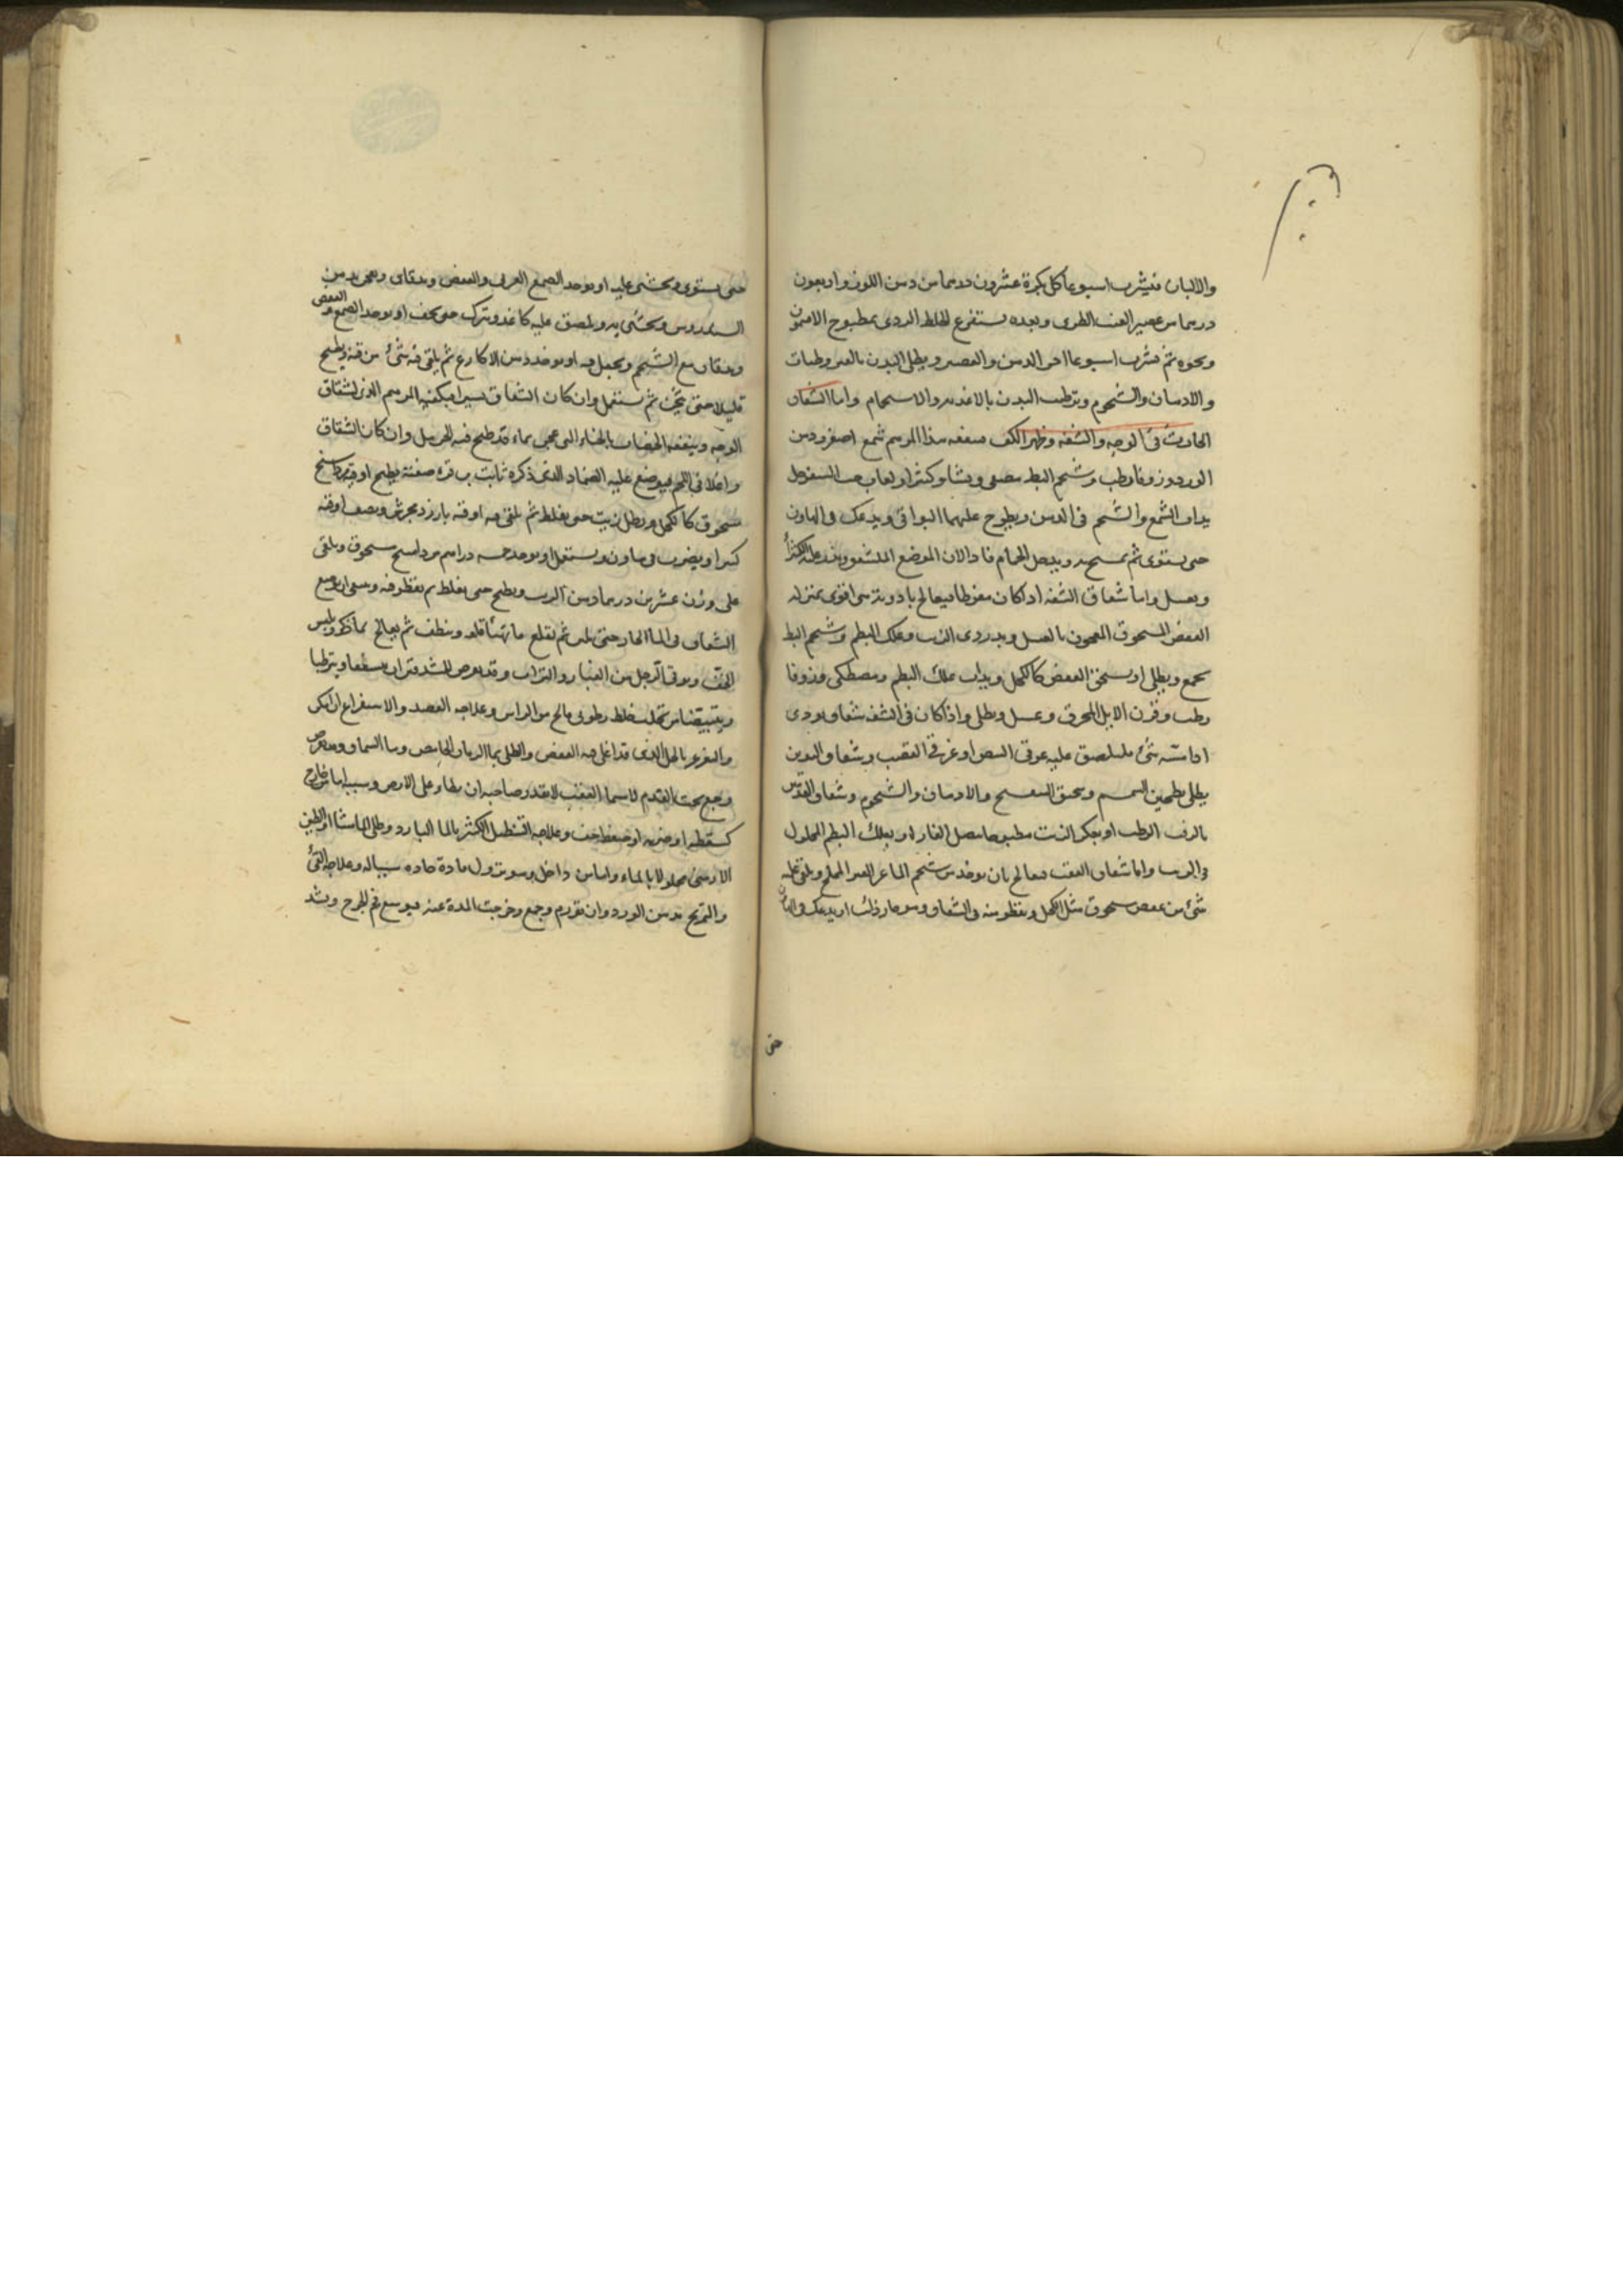 والالبان فيشرب اسبوعا كل بكرة عشرون درهما من دهن اللوز واربعون
درهما من عصير العنب الطرى وبعده يستفرغ الخلط الردى بمطبوخ الافتيمون
ونحوه ثم يشرب اسبوعا اخر الدهن والعصير ويطلى البدن بالقيروطيات
والادهان والشحوم وترطيب البدن بالاغذيه والاستحمام واما الشقاق
الحادث فى الوجه والشفه وظهر الكف فينفعه هذا المرهم شمع اصفر ودهن
الورد وزوفا رطب وشحم البط مصفى ونشا وكثيرا ولعاب حب السفرجل
يذاب الشمع والشحم فى الدهن ويطرح عليهما البواقى ويدعك فى الهاون
حتى يستوى ثم يمسح به ويدخل الحمام فاذا لان الموضع المتشقق يذر عليه الكثيرا
ويغسل واما شقاق الشفه اذا كان مفرطا فيعالج بادويه هى اقوى بمنزله
العفص المسحوق المعجون بالعسل وبدردى الزيت وعلك البطم وشحم البط
يجمع ويطلى او يسحق العفص كالكحل ويذاب علك البطم ومصطكى وزوفا
رطب وقرن الايل المحرق وعسل ويطلى واذا كان فى الشفه شقاق يوذى
اذا مسه شئ فليلصق عليه عرقى البيض او غرقى القصب وشقاق اليدين
يطلى بطحين السمسم وبحق البنفسج والادهان والشحوم وشقاق القدمين
بالزفت الرطب او بعكر الزيت مطبوخا بصل الفار او بعلك البطم المحلول
فى الزيت واما شقاق العقب فيعالج بان يوخذ من شحم الماعز الغير المملح ويلقى عليه
شئ من عفص مسحوق مثل الكحل ويقطر منه فى الشقاق وهو حار ذائب او يدعك فى الهاون
حتى
حتى يستوى ويحشى عليه او يوخذ الصمغ العربى والعفص ويدقان ويعجن بدهن
السندروس ويحشى به ويلصق عليه كاغذ ويترك حتى يجف او يوخذ الصمغ والعفص
ويدقان مع الشحم ويجعل فيه او يوخذ دهن الاكارع ثم يلقى فيه شئ من قنه ويطبخ
قليلا حتى يثخن ثم يستعمل وان كان الشقاق يسيرا فيكفيه المرهم الذى لشقاق
الوجه وينفعه الخضاب بالحناء التى عجن بماء قد طبخ فيه الحرمل وان كان الشقاق
داخلا فى اللحم فيوضع عليه الضماد الذى ذكره ثابت بن قره صفته يطبخ اوقيه مرداسنج
مسحوق كالكحل برطل زيت حتى يغلظ ثم يلقى فيه اوقيه بارزد مجرش ونصف اوقيه
كثيرا ويضرب فى هاون ويستعمل او يوخذ خمسه دراهم مرداسنج مسحوق ويلقى
على وزن عشرين درهما دهن الزيت ويطبخ حتى يغلظ ثم يقطر فيه وينبغى ان يوضع
الشقاق فى الماء الحار حتى يلين ثم يقلع ما تهيا قلعه وينظف ثم يعالج بما ذكر ويلبس
الخف ويوقى الرجل من الغبار والتراب وقد يعرض للشدقين ان يتشققا ويترطبا
ويتبيضا من تحلب خلط رطوبى مالح من الراس وعلاجه الفصد والاستفراغ ان امكن
والتغرغر بالخل الذى قد اغلى فيه العفص والطلى بماء الرمان الحامض وماء السماق ويعرض
وجع تحت القدم لاسيما العقب لا يقدر صاحبه ان يطا على الارض وسببه اما من خارج
كسقطه او ضربه او ضغط خف وعلاجه التنطيل الكثير بالماء البارد وطلى الماميثا او الطين
الارمنى محلولا بالماء واما من داخل وهو نزول مادة حاده سياله وعلاجه القئ
والتمريخ بدهن الورد وان تورم وجمع وخرجت المدة عنه فيوسع فم الجرح ويشد